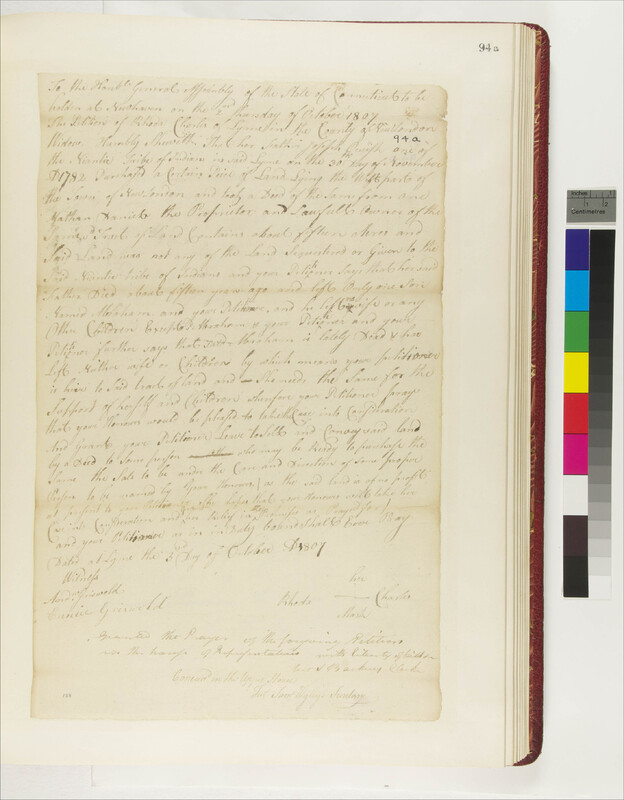 94a
To, the Honble General Assembly of the State of Connecticut to be
holden at Newhaven on the 2nd Thursday of October 1807
The Petition of Rhoda Charles of Lyme in the County of New London
94a
Widow Humbly Sheweth That her Father Joseph one of
the Niantic Tribe of Indians in said Lyme on the 30th Day of November
1782 Purchased a Certain Piece of Land Lying the West part of
the Town of New London and took a Deed of the Same from one
Nathan Daniels the Proprietor and Lawfull Owner of the
Tract of Land Contains about fifteen Acres and
Said Land was not any of the Land or Given to the
Said Niantic tribe of Indians and your Petitioner Says that her
father Died about fifteen years ago and left only one Son
Named Abraham and your Petitioner and he left no wife or any
Other Children Excepted Abraham & your Petitioner and your
Petitioner further says that Abraham is lately Dead &
Left Neither wife or Children by which means your petitioner
is heir to Said tract of land and She needs the Same for the
Support of herself and Children therefore your Petitioner prays
that your Honours would be pleased to take into Consideration
And Grant your Petitioner Leave to Sell and Convey said land
by a Deed to Some person who may be Ready to purchase the
Same the Sale to be under the Care and Direction of Some proper
Person to be named by Your Honours as the said land is of no profit
at present to your She hopes that your Honours will take her
and your Petitioner as in Duty bound shall Ever Pray
Dated at Lyme the 3 Day of October 1807
Witness
Griswold
Eunice Griswold
her
Rhoda — Charles
Mark
Granted the Prayer of the foregoing Petition
in the house of Representatives with Liberty of Bill
Clerk
in the Upper House
Secretary
Centimetres